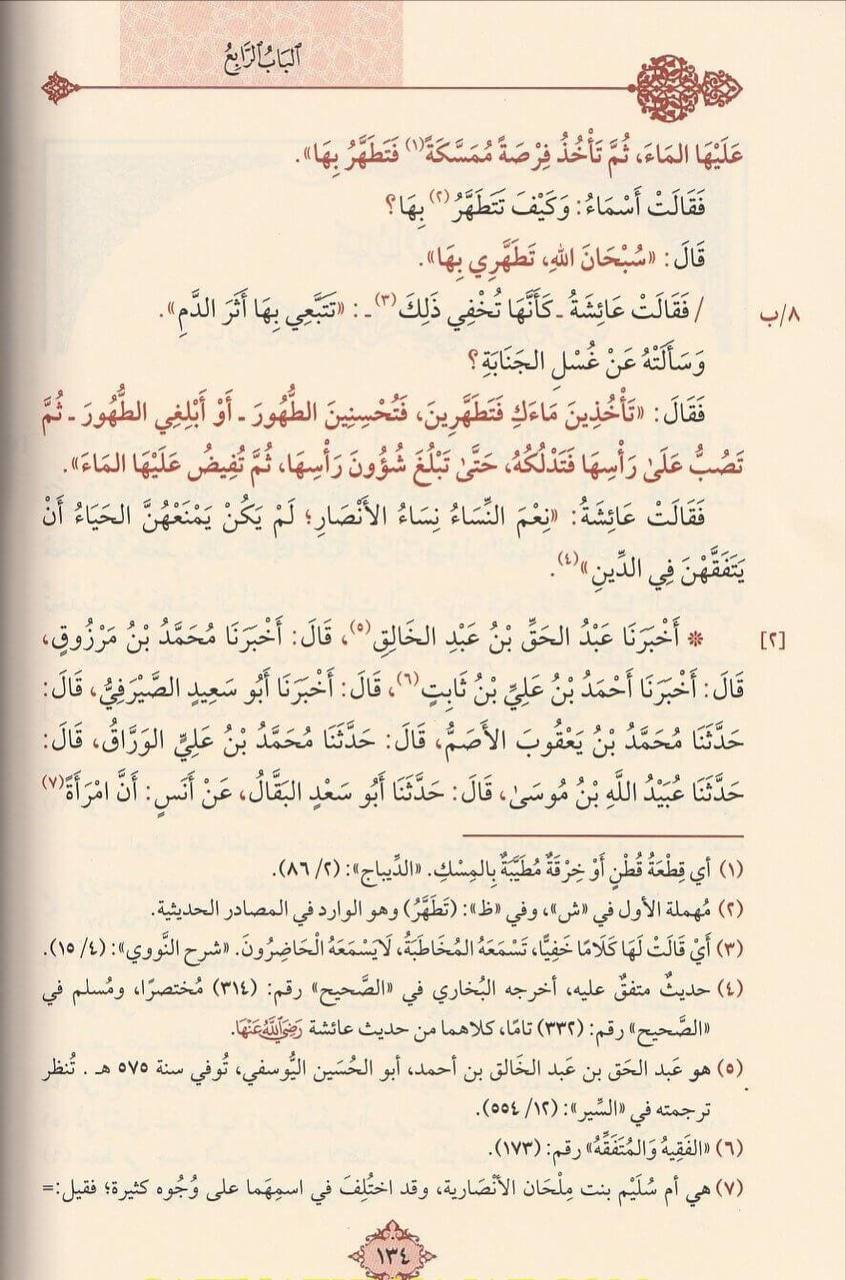 البَابُ الرَّابِعُ
عَلَيْهَا المَاءَ، ثُمَّ تَأْخُذُ فِرْصَةً مُمَسَّكَةً(١) فَتَطَهَّرُ بِهَا».
فَقَالَتْ أَسْمَاءُ: وَكَيْفَ تَتَطَهَّرُ(٢) بِهَا؟
قَالَ: «سُبْحَانَ اللهِ، تَطَهَّرِي بِهَا».
٨/ب / فَقَالَتْ عَائِشَةُ ـ كَأَنَّهَا تُخْفِي ذَلِكَ(٣) ـ: «تَتَبَّعِي بِهَا أَثَرَ الدَّمِ».
وَسَأَلَتْهُ عَنْ غُسْلِ الجَنَابَةِ؟
فَقَالَ: «تَأْخُذِينَ مَاءَكِ فَتَطَهَّرِينَ، فَتُحْسِنِينَ الطُّهُورَ ـ أَوْ أَبْلِغِي الطُّهُورَ ـ ثُمَّ
تَصُبُّ عَلَىٰ رَأْسِهَا فَتَدْلُكُهُ، حَتَّىٰ تَبْلُغَ شُؤُونَ رَأْسِهَا، ثُمَّ تُفِيضُ عَلَيْهَا المَاءَ».
فَقَالَتْ عَائِشَةُ: «نِعْمَ النِّسَاءُ نِسَاءُ الأَنْصَارِ؛ لَمْ يَكُنْ يَمْنَعْهُنَّ الحَيَاءُ أَنْ
يَتَفَقَّهْنَ فِي الدِّينِ»(٤).
[٢] * أَخْبَرَنَا عَبْدُ الحَقِّ بْنُ عَبْدِ الخَالِقِ(٥)، قَالَ: أَخْبَرَنَا مُحَمَّدُ بْنُ مَرْزُوقٍ،
قَالَ: أَخْبَرَنَا أَحْمَدُ بْنُ عَلِيِّ بْنُ ثَابِتٍ(٦)، قَالَ: أَخْبَرَنَا أَبُو سَعِيدٍ الصَّيْرَفِيُّ، قَالَ:
حَدَّثَنَا مُحَمَّدُ بْنُ يَعْقُوبَ الأَصَمُّ، قَالَ: حَدَّثَنَا مُحَمَّدُ بْنُ عَلِيٍّ الوَرَّاقُ، قَالَ:
حَدَّثَنَا عُبَيْدُ اللَّهِ بْنُ مُوسَىٰ، قَالَ: حَدَّثَنَا أَبُو سَعْدٍ البَقَّالُ، عَنْ أَنَسٍ: أَنَّ امْرَأَةً(٧)
(١) أي قِطْعَةُ قُطْنٍ أَوْ خِرْقَةٌ مُطَيَّبَةٌ بِالمِسْكِ. «الدِّيباج»: (٢/ ٨٦).
(٢) مُهملة الأول في «ش»، وفي «ظ»: (تَطَهَّرُ) وهو الوارد في المصادر الحديثية.
(٣) أَيْ قَالَتْ لَهَا كَلَامًا خَفِيًّا، تَسْمَعَهُ المُخَاطَبَةُ، لَايَسْمَعَهُ الْحَاضِرُونَ. «شرح النَّووي»: (٤/ ١٥).
(٤) حديثٌ متفقٌ عليه، أخرجه البُخاري في «الصَّحيح» رقم: (٣١٤) مُختصرًا، ومُسلم في
«الصَّحيح» رقم: (٣٣٢) تامًا، كلاهما من حديث عائشة رَضِيَ اللَّهُ عَنْهَا.
(٥) هو عَبد الحَق بن عَبد الخَالق بن أحمد، أبو الحُسَين اليُوسفي، تُوفي سنة ٥٧٥ هـ . تُنظر
ترجمته في «السِّير»: (١٢/ ٥٥٤).
(٦) «الفَقِيهُ وَالمُتَفَقِّهُ» رقم: (١٧٣).
(٧) هي أم سُلَيْم بنت مِلْحَان الأَنْصَارية، وقد اختُلِفَ في اسمِهَما على وُجُوه كثيرة؛ فقيل:=
١٣٤